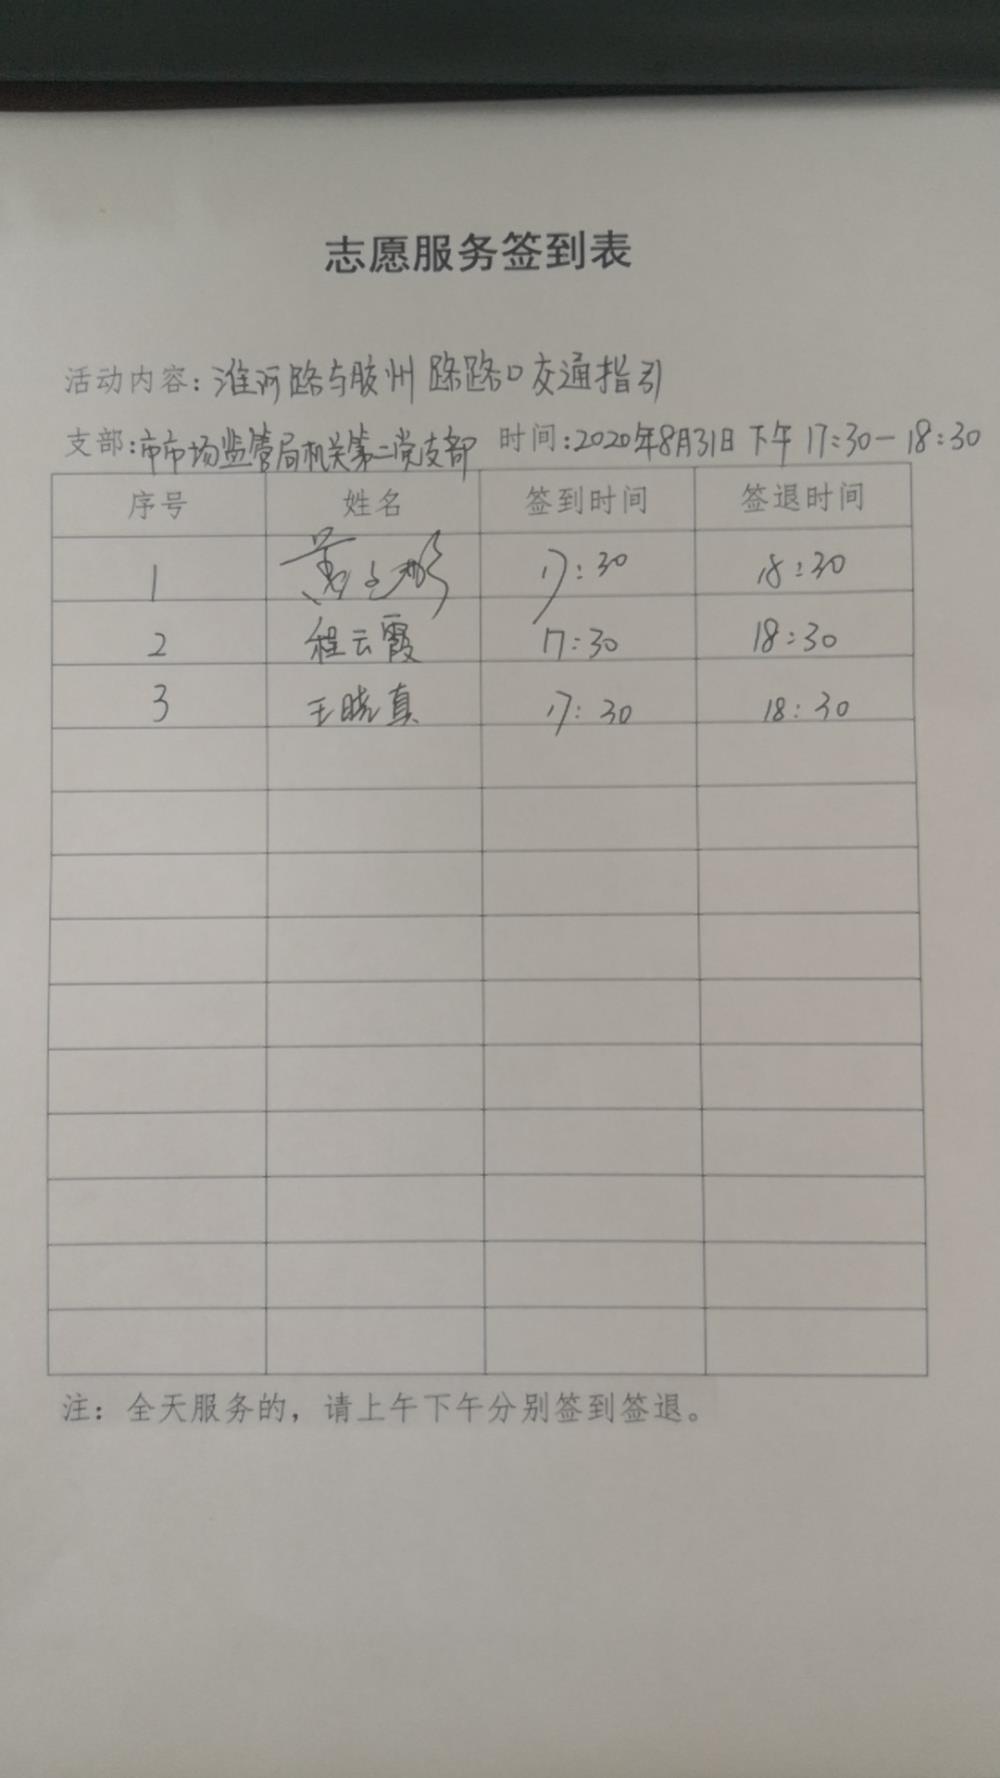 志愿服务签到表
活动内容：淮河路与胶州路路口交通指引
支部：市市场监管局机关第二党支部 时间：2020年8月31日下午17:30-18:30
序号 姓名 签到时间 签退时间
1 黄 17:30 18:30
2 程云霞 17:30 18:30
3 王晓真 17:30 18:30
注：全天服务的，请上午下午分别签到签退。